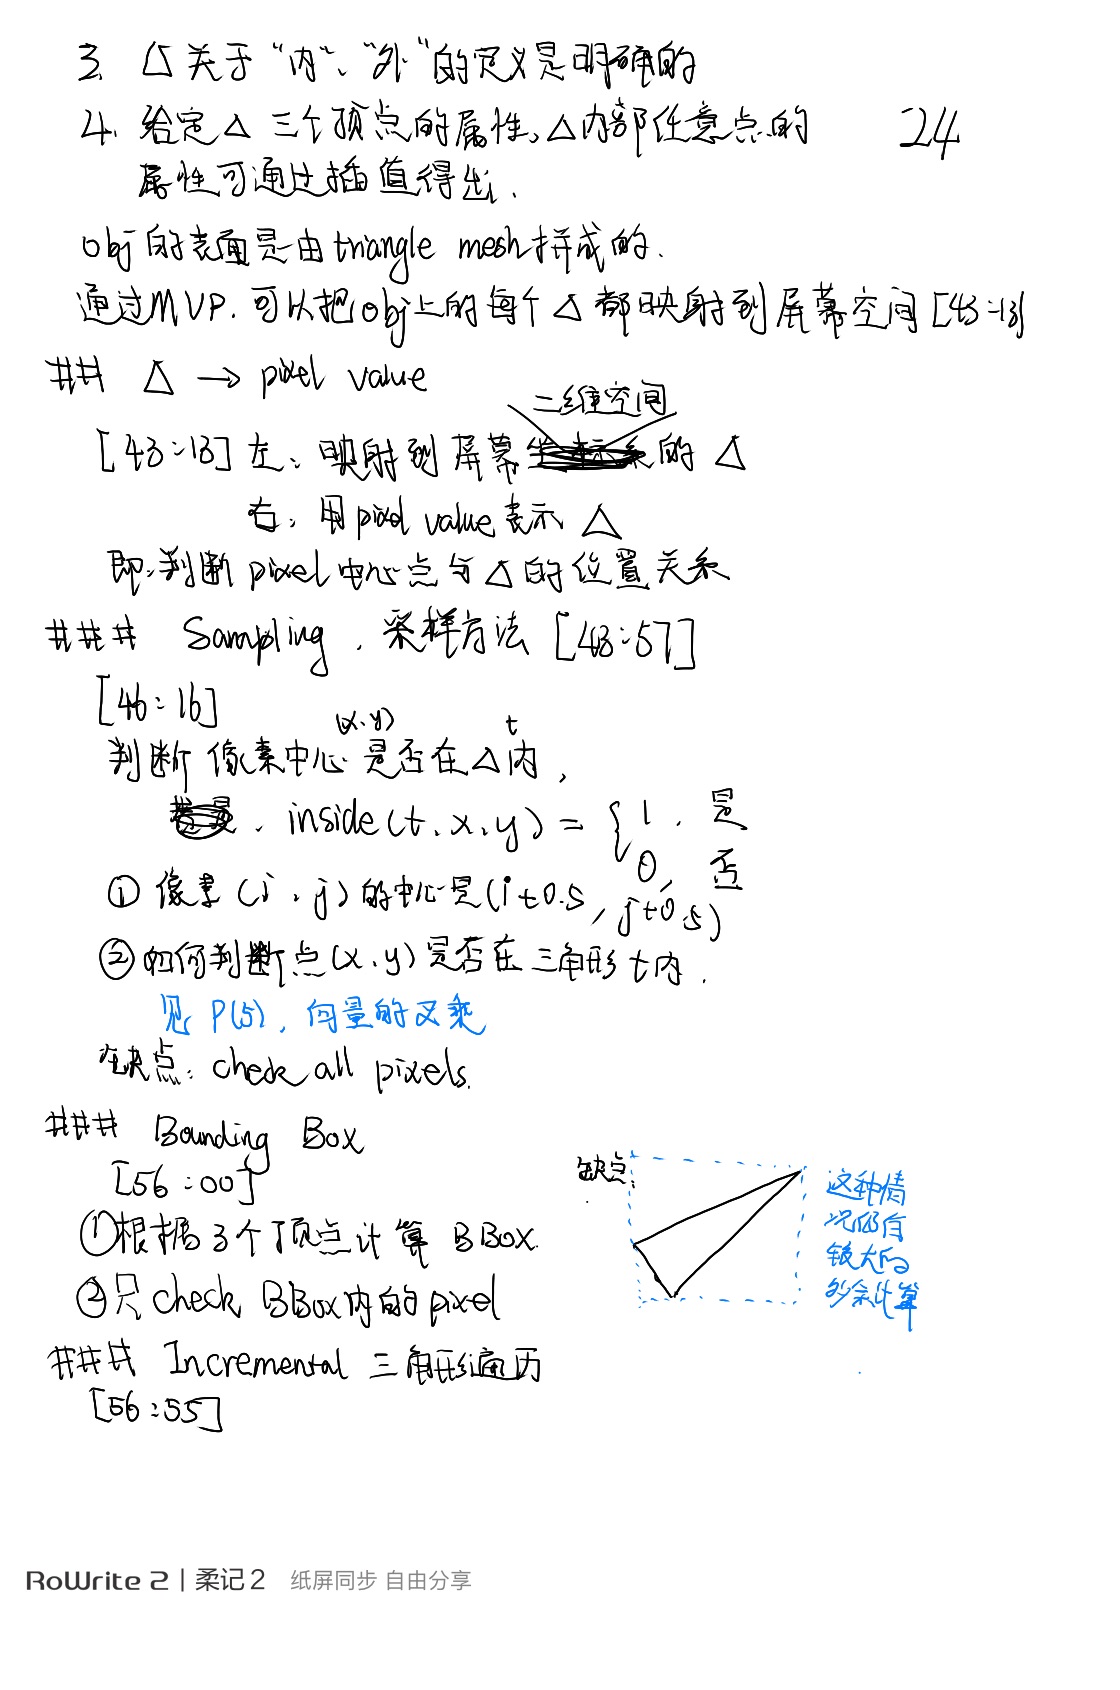 3. △关于“内”、“外”的定义是明确的
4. 给定△三个顶点的属性,△内部任意点的
24
属性可通过插值得出.
obj的表面是由triangle mesh拼成的.
通过MVP.可以把obj上的每个△都映射到屏幕空间[43:13]
## △ → pixel value
二维空间
[43:13]左:映射到屏幕的△
右:用pixel value表示△
即:判断pixel中心点与△的位置关系
### Sampling, 采样方法 [43:57]
[46:16]
(x.y) t
判断像素中心是否在△内,
inside(t.x.y) = { 1, 是
0, 否
① 像素(i,j)的中心是(i+0.5, j+0.5)
② 如何判断点(x.y)是否在三角形t内.
见P(5), 向量的叉乘
缺点: check all pixels.
### Bounding Box
[56:00]
①根据3个顶点计算BBox.
②只check BBox内的pixel
缺点:
这种情
况仍有
较大的
多余计算
### Incremental 三角形遍历
[56:55]
RoWrite 2 | 柔记2 纸屏同步 自由分享